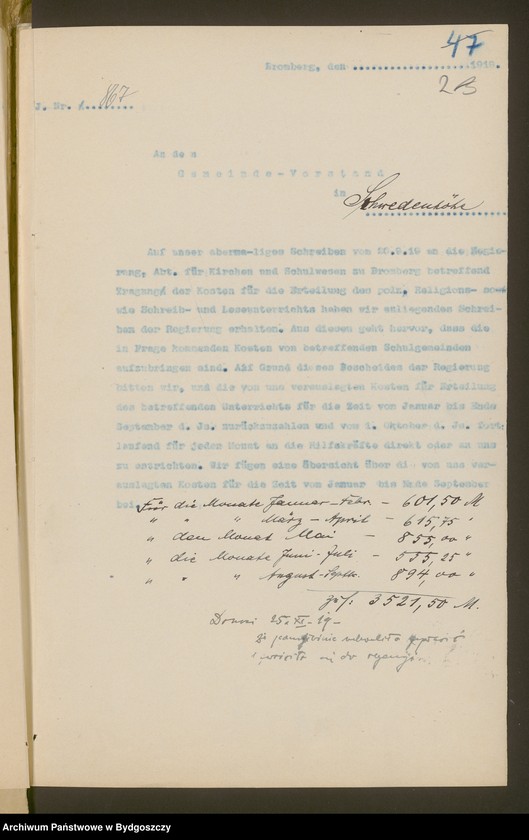 47
Bromberg, den ....................1919.
2B
J. Nr. 867
An den
Gemeinde-Vorstand
in Schwedenhöhe
Auf unser aberma-liges Schreiben vom 20.9.19 an die Regie-
rung, Abt. für Kirchen und Schulwesen zu Bromberg betreffend
Tragung der Kosten für die Erteilung des poln. Religions- sow-
wie Schreib- und Leseunterrichts haben wir anliegendes Schrei-
ben der Regierung erhalten. Aus diesem geht hervor, dass die
in Frage kommenden Kosten von betreffenden Schulgemeinden
aufzubringen sind. Auf Grund dieses Bescheides der Regierung
bitten wir, und die von uns verauslagten Kosten für Erteilung
des betreffenden Unterrichts für die Zeit von Januar bis Ende
September d. Js. zurückzuzahlen und vom 1. Oktober d. Js. fort-
laufend für jeden Monat an die Hilfskräfte direkt oder an uns
zu entrichten. Wir fügen eine Übersicht über die von uns ver-
auslagten Kosten für die Zeit vom Januar bis Ende September
bei.
Für die Monate Januar - Febr. - 601,50 M
" " " März - April - 615,75 "
" den Monat Mai - 855,00 "
" die Monate Juni - Juli - 555,25 "
" " " August - Septbr. 894,00 "
zus. 3521,50 M.
25. XI. 19
Archiwum Państwowe w Bydgoszczy